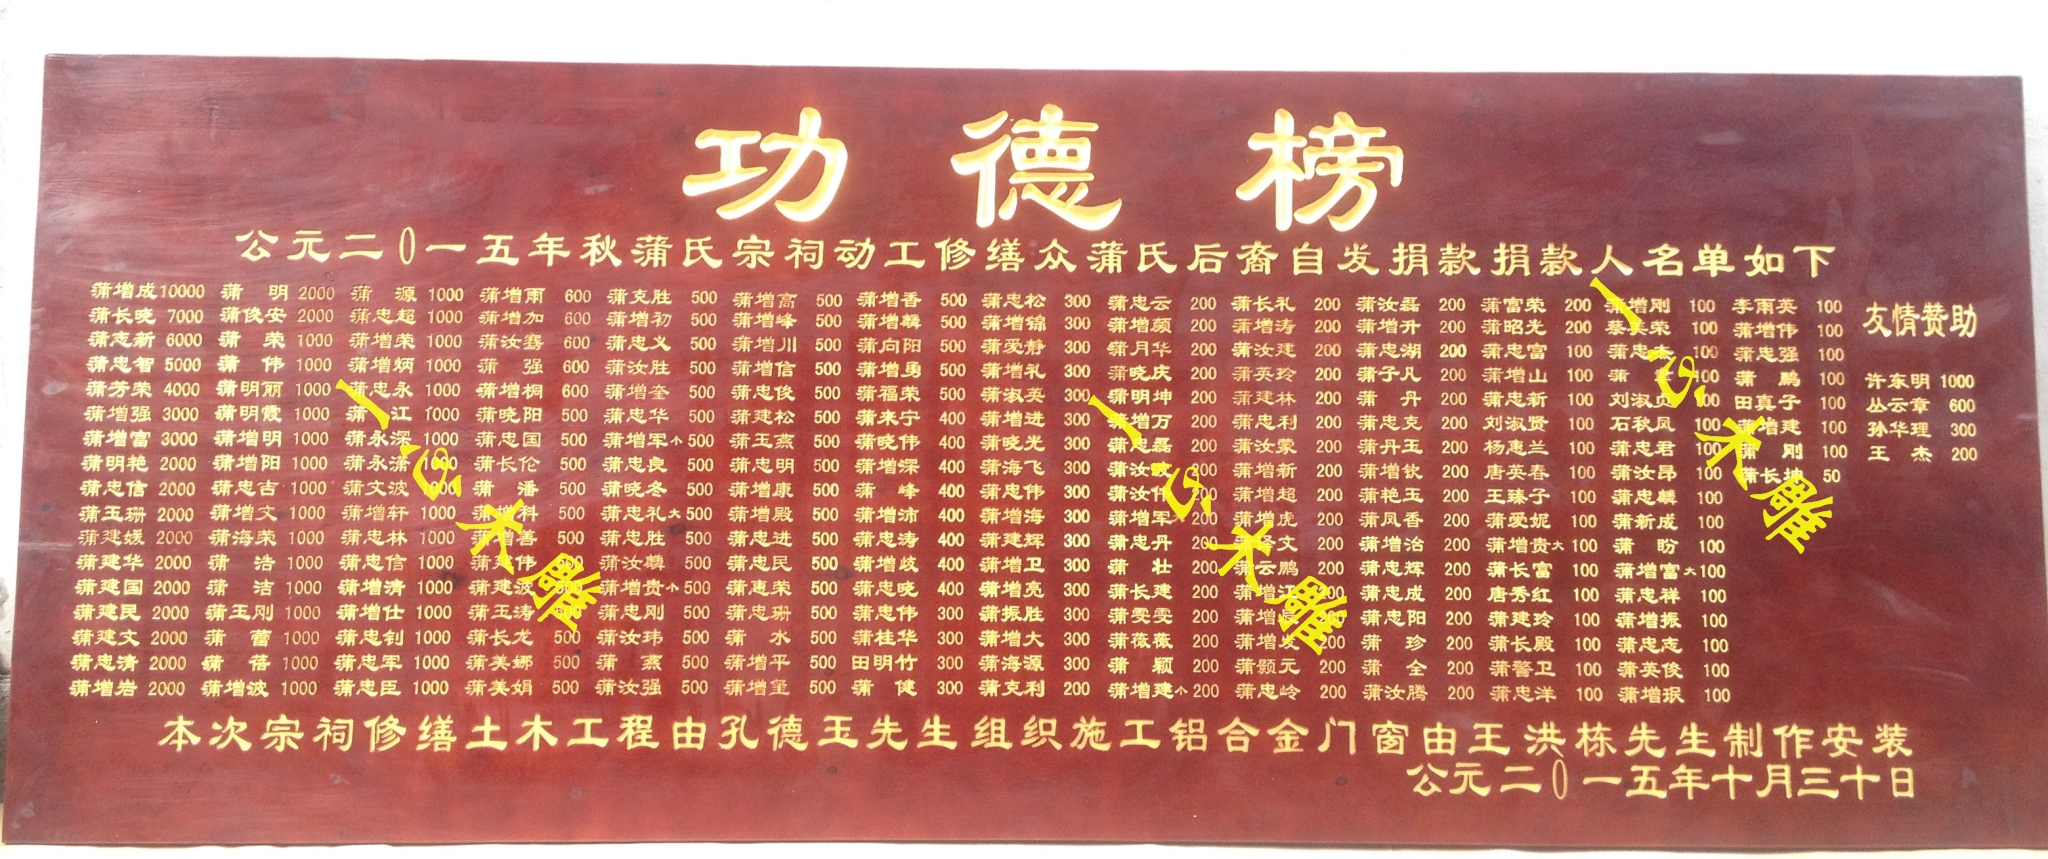 功德榜
公元二〇一五年秋蒲氏宗祠动工修缮众蒲氏后裔自发捐款捐款人名单如下
蒲增成 10000 蒲 明 2000 蒲 源 1000 蒲增雨 600 蒲克胜 500 蒲增高 500 蒲增香 500 蒲忠松 300 蒲忠云 200 蒲长礼 200 蒲汝磊 200 蒲富荣 200 蒲增刚 100 李雨英 100
蒲长晓 7000 蒲俊安 2000 蒲忠超 1000 蒲增加 600 蒲增初 500 蒲增峰 500 蒲增麟 500 蒲增锦 300 蒲增颜 200 蒲增涛 200 蒲增升 200 蒲昭光 200 蔡美荣 100 蒲增伟 100
蒲志新 6000 蒲 荣 1000 蒲增荣 1000 蒲汝骞 600 蒲忠义 500 蒲增川 500 蒲向阳 500 蒲爱静 300 蒲月华 200 蒲汝建 200 蒲忠湖 200 蒲忠富 100 蒲忠 100 蒲忠强 100
蒲忠智 5000 蒲 伟 1000 蒲增炳 1000 蒲 强 600 蒲汝胜 500 蒲增信 500 蒲增勇 500 蒲增礼 300 蒲晓庆 200 蒲英玲 200 蒲子凡 200 蒲增山 100 蒲 100 蒲 鹏 100
蒲芳荣 4000 蒲明丽 1000 蒲忠永 1000 蒲增桐 600 蒲增奎 500 蒲忠俊 500 蒲福荣 500 蒲淑英 300 蒲明坤 200 蒲建林 200 蒲 丹 200 蒲忠新 100 刘淑贞 100 田真子 100
蒲增强 3000 蒲明霞 1000 蒲 江 1000 蒲晓阳 500 蒲忠华 500 蒲建松 500 蒲来宁 400 蒲增进 300 蒲增万 200 蒲忠利 200 蒲忠克 200 刘淑贤 100 石秋凤 100 蒲增建 100
蒲增富 3000 蒲增明 1000 蒲永深 1000 蒲忠国 500 蒲增军小 500 蒲玉燕 500 蒲晓伟 400 蒲晓光 300 蒲忠磊 200 蒲汝蒙 200 蒲丹玉 200 杨惠兰 100 蒲忠君 100 蒲 刚 100
蒲明艳 2000 蒲增阳 1000 蒲永潇 1000 蒲长伦 500 蒲忠良 500 蒲忠明 500 蒲增深 400 蒲海飞 300 蒲汝波 200 蒲增新 200 蒲增钦 200 唐英春 100 蒲汝昂 100 蒲长坤 50
蒲忠信 2000 蒲忠吉 1000 蒲文波 1000 蒲 潘 500 蒲晓冬 500 蒲增康 500 蒲 峰 400 蒲忠伟 300 蒲汝伟 200 蒲增超 200 蒲艳玉 200 王臻子 100 蒲忠麟 100
蒲玉珊 2000 蒲增文 1000 蒲增轩 1000 蒲增科 500 蒲忠礼大 500 蒲增殿 500 蒲增沛 400 蒲增海 300 蒲增军 200 蒲增虎 200 蒲凤香 200 蒲爱妮 100 蒲新成 100
蒲建媛 2000 蒲海荣 1000 蒲忠林 1000 蒲增善 500 蒲忠胜 500 蒲忠进 500 蒲忠涛 400 蒲建辉 300 蒲忠丹 200 蒲泽文 200 蒲增治 200 蒲增贵大 100 蒲 盼 100
蒲建华 2000 蒲 浩 1000 蒲忠信 1000 蒲建伟 500 蒲汝麟 500 蒲忠民 500 蒲增岐 400 蒲增卫 300 蒲 壮 200 蒲云鹏 200 蒲忠辉 200 蒲长富 100 蒲增富大 100
蒲建国 2000 蒲 洁 1000 蒲增清 1000 蒲建波 500 蒲增贵小 500 蒲惠荣 500 蒲忠晓 400 蒲增亮 300 蒲长建 200 蒲增江 200 蒲忠成 200 唐秀红 100 蒲忠祥 100
蒲建民 2000 蒲玉刚 1000 蒲增仕 1000 蒲玉涛 500 蒲忠刚 500 蒲忠珊 500 蒲忠伟 300 蒲振胜 300 蒲雯雯 200 蒲增 200 蒲忠阳 200 蒲建玲 100 蒲增振 100
蒲建文 2000 蒲 蕾 1000 蒲忠钊 1000 蒲长龙 500 蒲汝玮 500 蒲 水 500 蒲桂华 300 蒲增大 300 蒲薇薇 200 蒲增友 200 蒲 珍 200 蒲长殿 100 蒲忠志 100
蒲忠清 2000 蒲 蓓 1000 蒲忠军 1000 蒲美娜 500 蒲 燕 500 蒲增平 500 田明竹 300 蒲海源 300 蒲 颖 200 蒲颢元 200 蒲 全 200 蒲警卫 100 蒲英俊 100
蒲增岩 2000 蒲增波 1000 蒲忠臣 1000 蒲美娟 500 蒲汝强 500 蒲增玺 500 蒲 健 300 蒲克利 200 蒲增建小 200 蒲忠岭 200 蒲汝腾 200 蒲忠洋 100 蒲增珉 100
友情赞助
许东明 1000
丛云章 600
孙华理 300
王 杰 200
本次宗祠修缮土木工程由孔德玉先生组织施工铝合金门窗由王洪栋先生制作安装
公元二〇一五年十月三十日
一心木雕
一心木雕
一心木雕